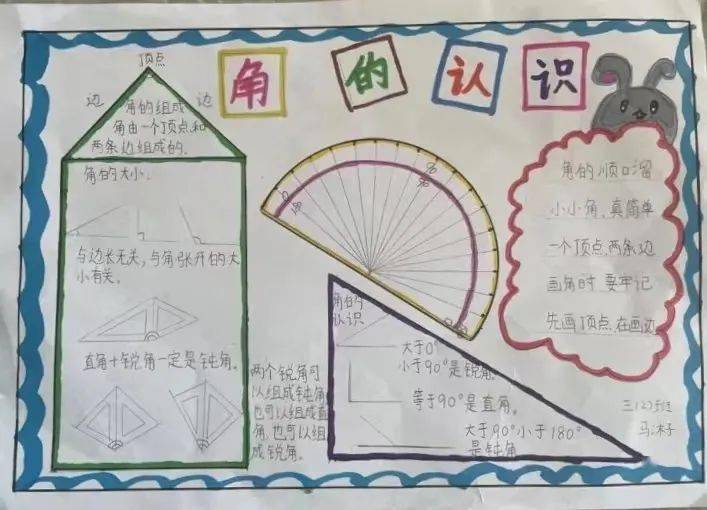 角的认识
顶点
边
边
角的组成
角由一个顶点和
两条边组成的。
角的大小.
与边长无关，与角张开的大
小有关。
直角+锐角一定是钝角。
两个锐角可
以组成钝角
也可以组成直
角.也可以组
成锐角。
0
180
90
90
角的
认识
大于0°
小于90°是锐角
等于90°是直角。
大于90°小于180°
是钝角
角的顺口溜
小小角，真简单
一个顶点，两条边
画角时 要牢记
先画顶点，在画边
三(2)班